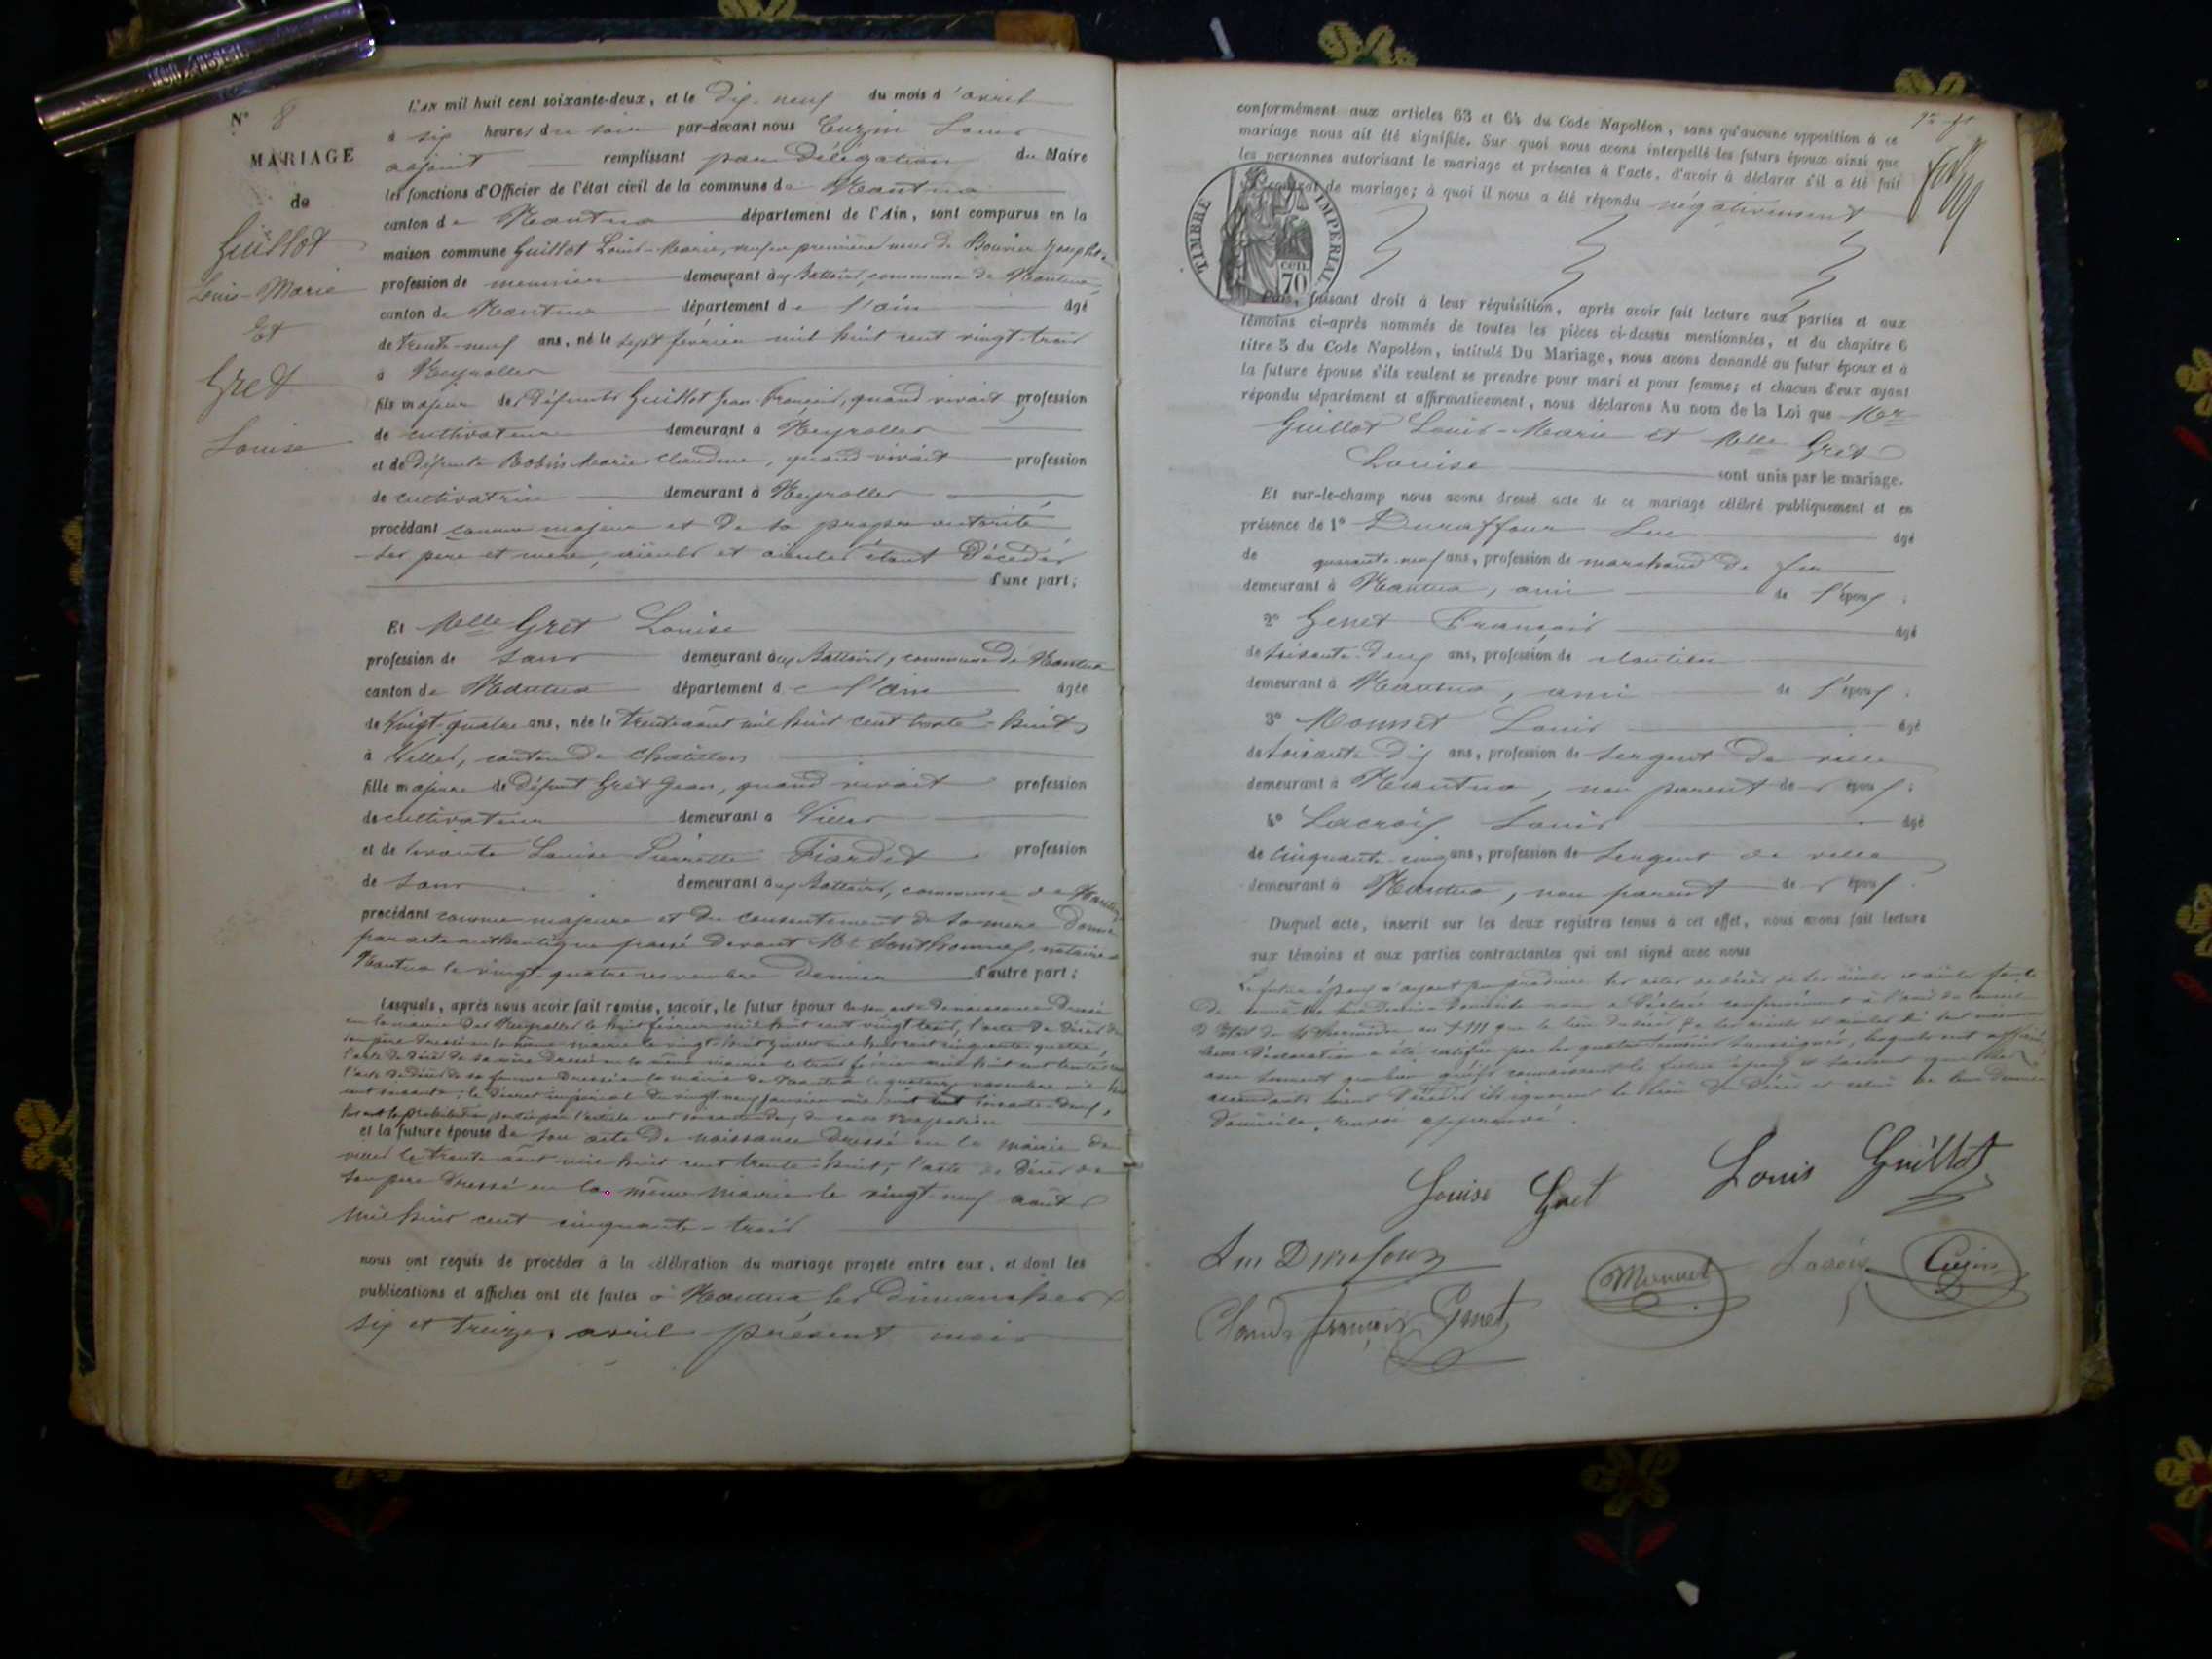 N° 8
MARIAGE
de
Guillot
Louis-Marie
Et
Gret
Louise
L'AN mil huit cent soixante-deux, et le Dix-neuf du mois d'avril
à six heures du soir par-devant nous Cuzin Louis
adjoint remplissant par Délégation du Maire
les fonctions d'Officier de l'état civil de la commune de Nantua
canton de Nantua département de l'Ain, sont comparus en la
maison commune Guillot Louis-Marie, veuf en premières noces de Bouvier Josephte
profession de meunier demeurant aux Battoirs, commune de Nantua
canton de Nantua département de l'ain âgé
de trente-neuf ans, né le sept février mil huit cent vingt-trois
à Neyrolles
fils majeur des défunts Guillot Jean-François, quand vivait profession
de cultivateur demeurant à Neyrolles
et de défunte Robin Marie Claudine, quand vivait profession
de cultivatrice demeurant à Neyrolles
procédant comme majeur et de sa propre autorité
ses père et mère, aïeuls et aïeules étant Décédés
d'une part;
Et Melle Gret Louise
profession de sans demeurant aux Battoirs, commune de Nantua
canton de Nantua département de l'ain âgée
de vingt-quatre ans, née le trente août mil huit cent trente-huit
à Villes, canton de Chatillon
fille majeure de défunt Gret Jean, quand vivait profession
de cultivateur demeurant à Villes
et de vivante Louise Pierrette Fiardet profession
de sans demeurant aux Battoirs, commune de Nantua
procédant comme majeure et du consentement de sa mère donné
par acte authentique passé devant Me notaire à
Nantua le vingt-quatre novembre Dernier d'autre part;
Lesquels, après nous avoir fait remise, savoir, le futur époux de son acte de naissance Dressé
en la mairie des Neyrolles le huit février mil huit cent vingt trois, l'acte de Décès de
son père Dressé en la même mairie le vingt-huit juillet mil huit cent cinquante-quatre,
l'acte de Décès de sa mère Dressé en la même mairie le trois février mil huit cent
l'acte de Décès de sa femme Dressé en la mairie de Nantua le quatorze novembre mil huit
cent soixante; le Décret impérial du vingt neuf janvier mil huit cent soixante-deux,
levant la prohibition portée par l'article cent soixante-deux du code Napoléon
et la future épouse de son acte de naissance dressé en la mairie de
villes le trente août mil huit cent trente-huit, l'acte de Décès de
son père Dressé en la même mairie le vingt-neuf août
mil huit cent cinquante-trois
nous ont requis de procéder à la célébration du mariage projeté entre eux, et dont les
publications et affiches ont été faites à Nantua les Dimanches
six et treize avril présent mois
conformément aux articles 63 et 64 du Code Napoléon, sans qu'aucune opposition à ce
mariage nous ait été signifiée. Sur quoi nous avons interpellé les futurs époux ainsi que
les personnes autorisant le mariage et présentes à l'acte, d'avoir à déclarer s'il a été fait
contrat de mariage; à quoi il nous a été répondu négativement
TIMBRE IMPERIAL
CEN.
70
Puis, faisant droit à leur réquisition, après avoir fait lecture aux parties et aux
témoins ci-après nommés de toutes les pièces ci-dessus mentionnées, et du chapitre 6
titre 5 du Code Napoléon, intitulé Du Mariage, nous avons demandé au futur époux et à
la future épouse s'ils veulent se prendre pour mari et pour femme; et chacun d'eux ayant
répondu séparément et affirmativement, nous déclarons Au nom de la Loi que Mr
Guillot Louis-Marie et Melle Gret
Louise sont unis par le mariage.
Et sur-le-champ nous avons dressé acte de ce mariage célébré publiquement et en
présence de 1° Duraffour Luc âgé
de quarante-neuf ans, profession de marchand de fer
demeurant à Nantua, ami de l'époux;
2° Genet François âgé
de soixante-deux ans, profession de cloutier
demeurant à Nantua, ami de l'époux;
3° Monnet Louis âgé
de soixante-dix ans, profession de sergent de ville
demeurant à Nantua, non parent des époux;
4° Lacroix Louis âgé
de cinquante-cinq ans, profession de sergent de ville
demeurant à Nantua, non parent des époux.
Duquel acte, inscrit sur les deux registres tenus à cet effet, nous avons fait lecture
aux témoins et aux parties contractantes qui ont signé avec nous
Le futur époux n'ayant pu produire les actes de décès de ses aïeuls et aïeules faute
de connaître leur dernier domicile nous a déclaré conformément à l'avis du Conseil
d'Etat du 4 thermidor an XIII que le lieu du décès de ses aïeuls et aïeules lui sont inconnus
cette Déclaration a été certifiée par les quatre témoins soussignés, lesquels ont affirmé
avec serment que bien qu'ils connaissent le futur époux et sachent que ses
ascendants soient Décédés ils ignorent le lieu du Décès et celui de leur dernier
Domicile, renvoi approuvé.
Louise Gret Louis Guillot
Luc Duraffour Monnet Lacroix Cuzin
Claude François Genet